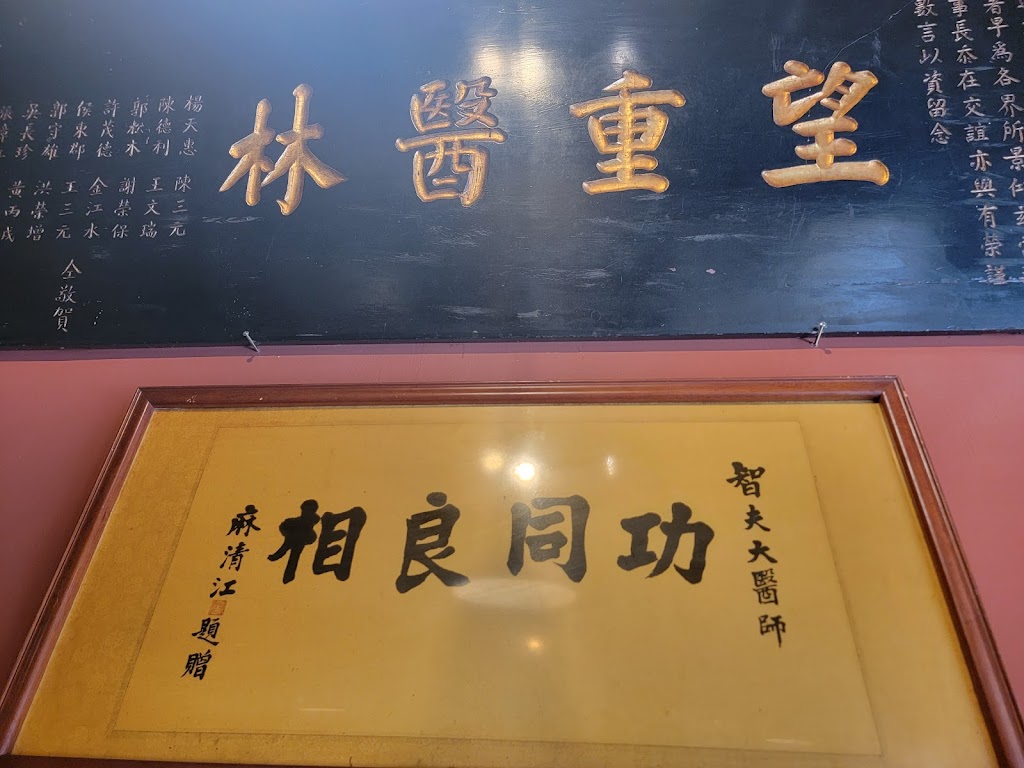 望重醫林
早為各界所景仁
事長忝在交誼亦與有榮謹
數言以資留念
楊天惠
陳德利 陳三元
郭松木 王文瑞
許茂德 謝榮保
侯東郡 金江水
郭守雄 王三元
吳長珍 洪榮增
黃丙戌
仝敬賀
智夫大醫師
功同良相
麻清江
題贈